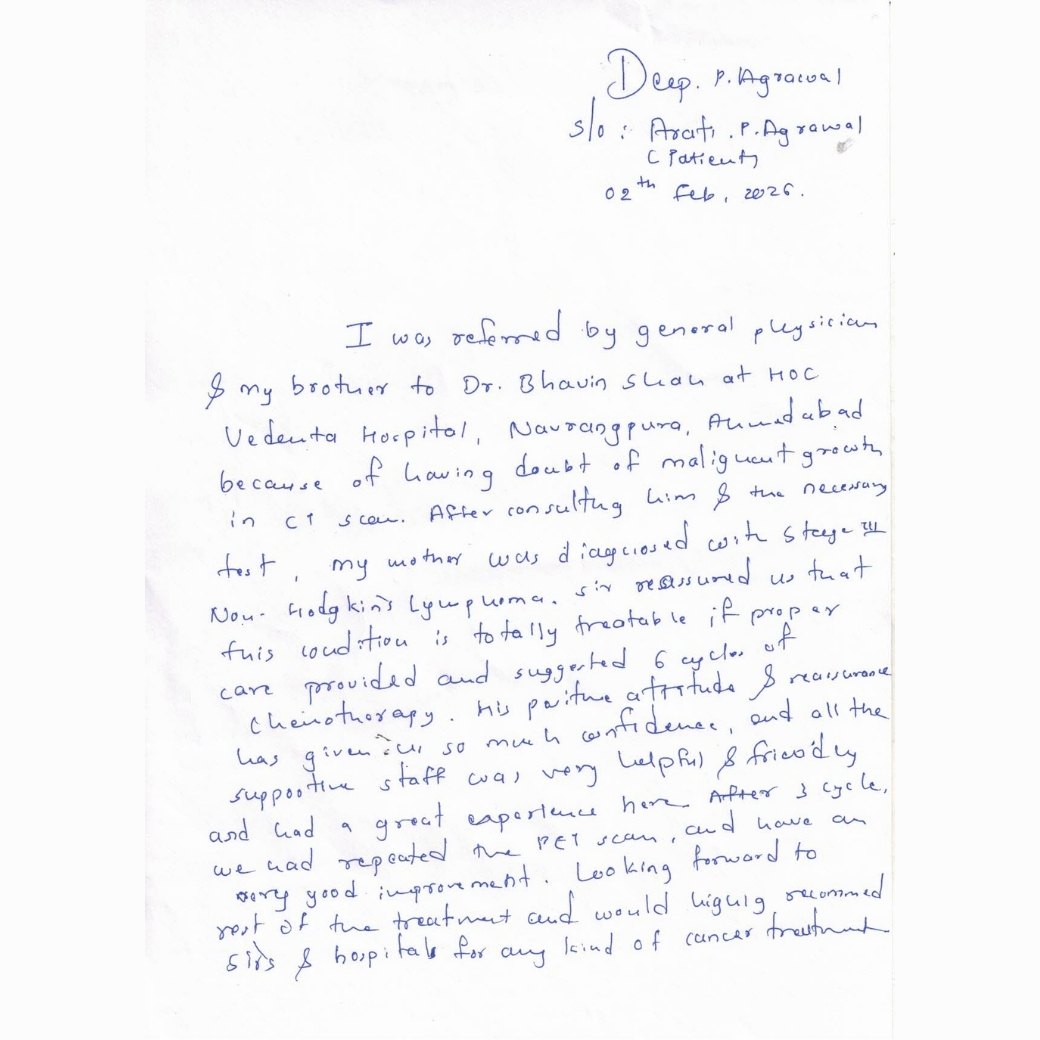 Deep. P. Agrawal
S/o : Arati. P. Agrawal
( Patient )
02th Feb, 2026.
I was referred by general physician
& my brother to Dr. Bhavin Shah at HOC
Vedanta Hospital, Navrangpura, Ahmedabad
because of having doubt of malignant growth
in CT scan. After consulting him & the necessary
test, my mother was diagnosed with stage III
Non-Hodgkin's Lymphoma. Sir reassured us that
this condition is totally treatable if proper
care provided and suggested 6 cycles of
chemotherapy. His positive attitude & reassurance
has given us so much confidence, and all the
supportive staff was very helpful & friendly
and had a great experience here. After 3 cycle,
we had repeated the PET scan, and have an
very good improvement. Looking forward to
rest of the treatment and would highly recommed
Sir's & hospitals for any kind of cancer treatment